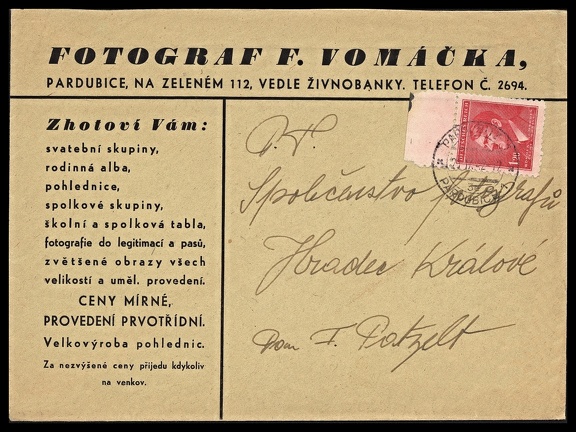 FOTOGRAF F. VOMÁČKA,
PARDUBICE, NA ZELENÉM 112, VEDLE ŽIVNOBANKY. TELEFON Č. 2694.
Zhotoví Vám:
svatební skupiny,
rodinná alba,
pohlednice,
spolkové skupiny,
školní a spolková tabla,
fotografie do legitimací a pasů,
zvětšené obrazy všech
velikostí a uměl. provedení.
CENY MÍRNÉ,
PROVEDENÍ PRVOTŘÍDNÍ.
Velkovýroba pohlednic.
Za nezvýšené ceny přijedu kdykoliv
na venkov.
PARDUBICE
Společenstvo fotografů
Hradec Králové
F. Patzelt